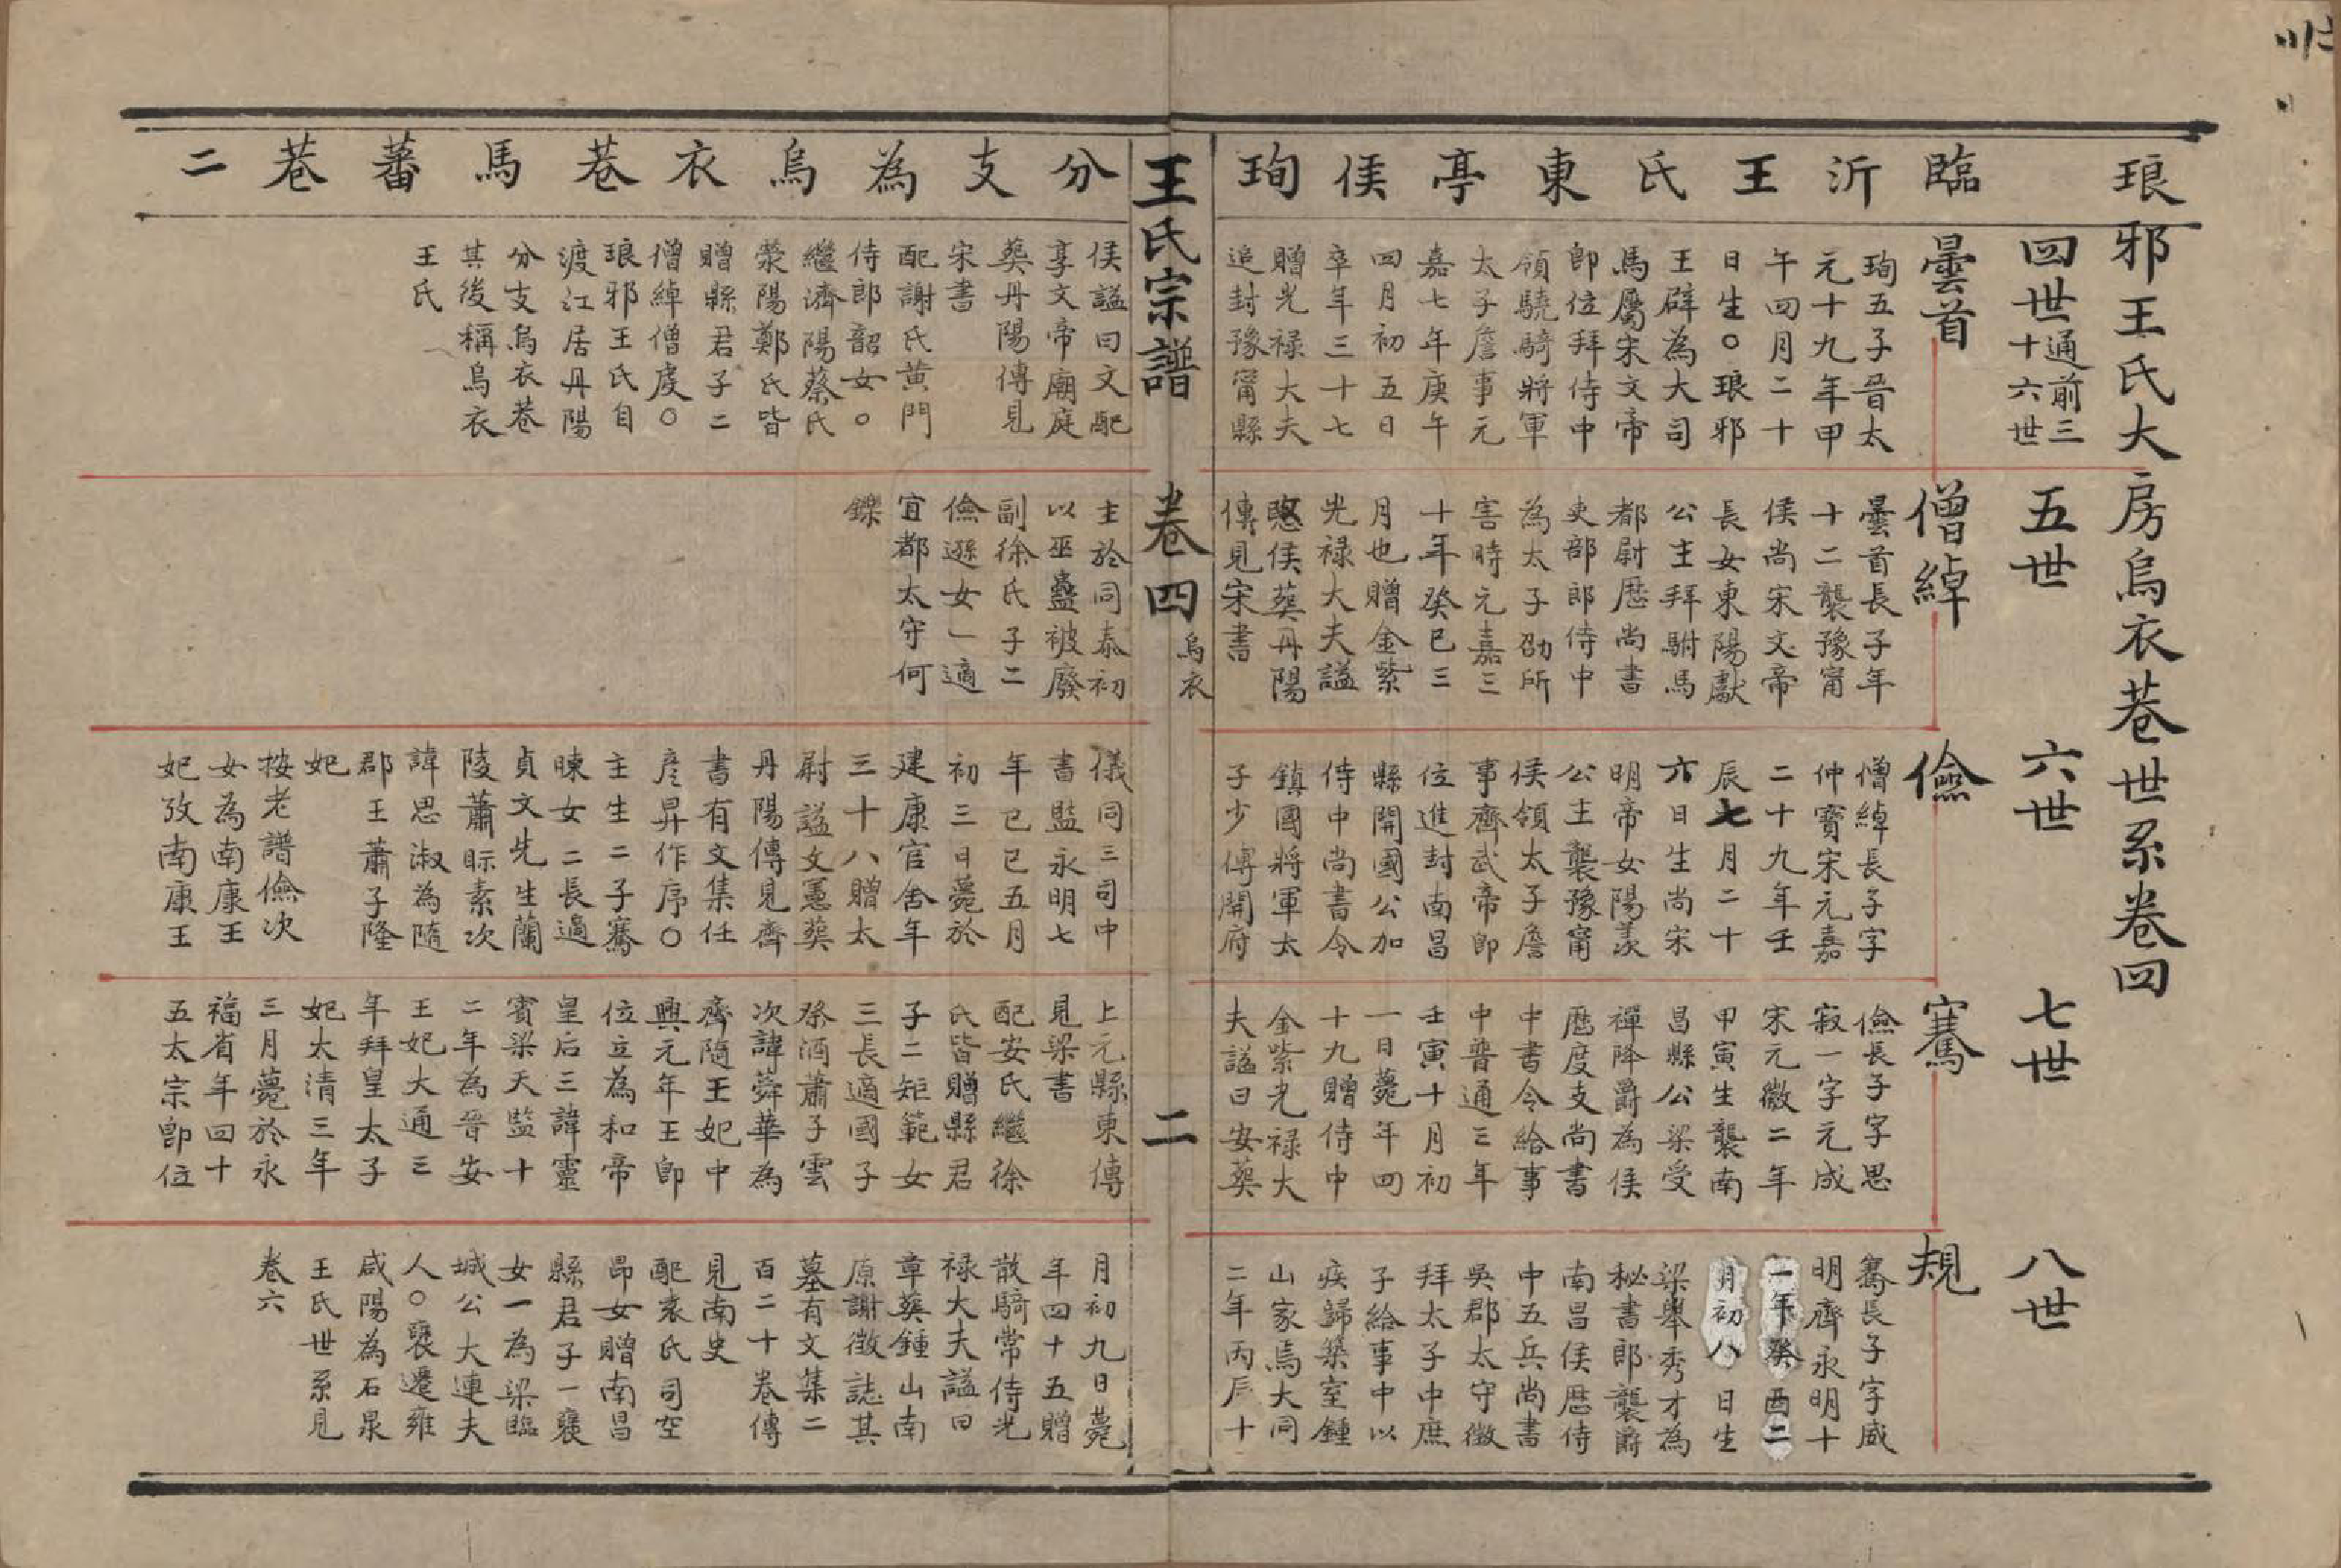 琅邪王氏大房烏衣巷世系卷四
臨沂王氏東亭侯珣
分支為烏衣巷馬蕃巷二
四世通前三十六世
曇首
珣五子晉太
元十九年甲
午四月二十
日生○琅邪
王辟為大司
馬屬宋文帝
即位拜侍中
領驍騎將軍
太子詹事元
嘉七年庚午
四月初五日
卒年三十七
贈光禄大夫
追封豫甯縣
侯諡曰文配
享文帝廟庭
葬丹陽傳見
宋書
配謝氏黄門
侍郎韶女○
繼濟陽蔡氏
滎陽鄭氏皆
贈縣君子二
僧綽僧虔○
琅邪王氏自
渡江居丹陽
分支烏衣巷
其後稱烏衣
王氏
五世
僧綽
曇首長子年
十二襲豫甯
侯尚宋文帝
長女東陽獻
公主拜駙馬
都尉歷尚書
吏部郎侍中
為太子劭所
害時元嘉三
十年癸巳三
月也贈金紫
光禄大夫諡
愍侯葬丹陽
傳見宋書
主於同泰初
以巫蠱被廢
副徐氏子二
儉遜女一適
宜都太守何
鑠
六世
儉
僧綽長子字
仲寶宋元嘉
二十九年壬
辰七月二十
六日生尚宋
明帝女陽羨
公主襲豫甯
侯領太子詹
事齊武帝即
位進封南昌
縣開國公加
侍中尚書令
鎮國將軍太
子少傅開府
儀同三司中
書監永明七
年己巳五月
初三日薨於
建康官舍年
三十八贈太
尉諡文憲葬
丹陽傳見齊
書有文集任
彥昇作序○
主生二子騫
暕女二長適
貞文先生蘭
陵蕭眎素次
諱思淑為隨
郡王蕭子隆
妃
按老譜儉次
女為南康王
妃攷南康王
七世
騫
儉長子字思
寂一字元成
宋元徽二年
甲寅生襲南
昌縣公梁受
禪降爵為侯
歷度支尚書
中書令給事
中普通三年
壬寅十月初
一日薨年四
十九贈侍中
金紫光禄大
夫諡曰安葬
上元縣東傳
見梁書
配安氏繼徐
氏皆贈縣君
子二矩範女
三長適國子
祭酒蕭子雲
次諱蕣華為
齊隨王妃中
興元年王即
位立為和帝
皇后三諱靈
賓梁天監十
二年為晉安
王妃大通三
年拜皇太子
妃太清三年
三月薨於永
福省年四十
五太宗卽位
八世
規
騫長子字威
明齊永明十
一年癸酉二
月初八日生
梁舉秀才為
秘書郎襲爵
南昌侯歷侍
中五兵尚書
吳郡太守徵
拜太子中庶
子給事中以
疾歸築室鍾
山家焉大同
二年丙辰十
月初九日薨
年四十五贈
散騎常侍光
禄大夫諡曰
章葬鍾山南
原謝徵誌其
墓有文集二
百二十卷傳
見南史
配袁氏司空
昂女贈南昌
縣君子一襃
女一為梁臨
城公大連夫
人○襃遷雍
咸陽為石泉
王氏世系見
卷六
王氏宗譜
卷四
烏衣
二